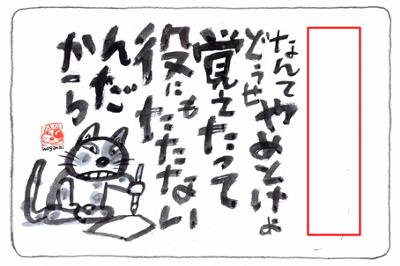 なんてやめとけよ
どうせ
覚えたって
役にもたたない
んだ
から
wayanai